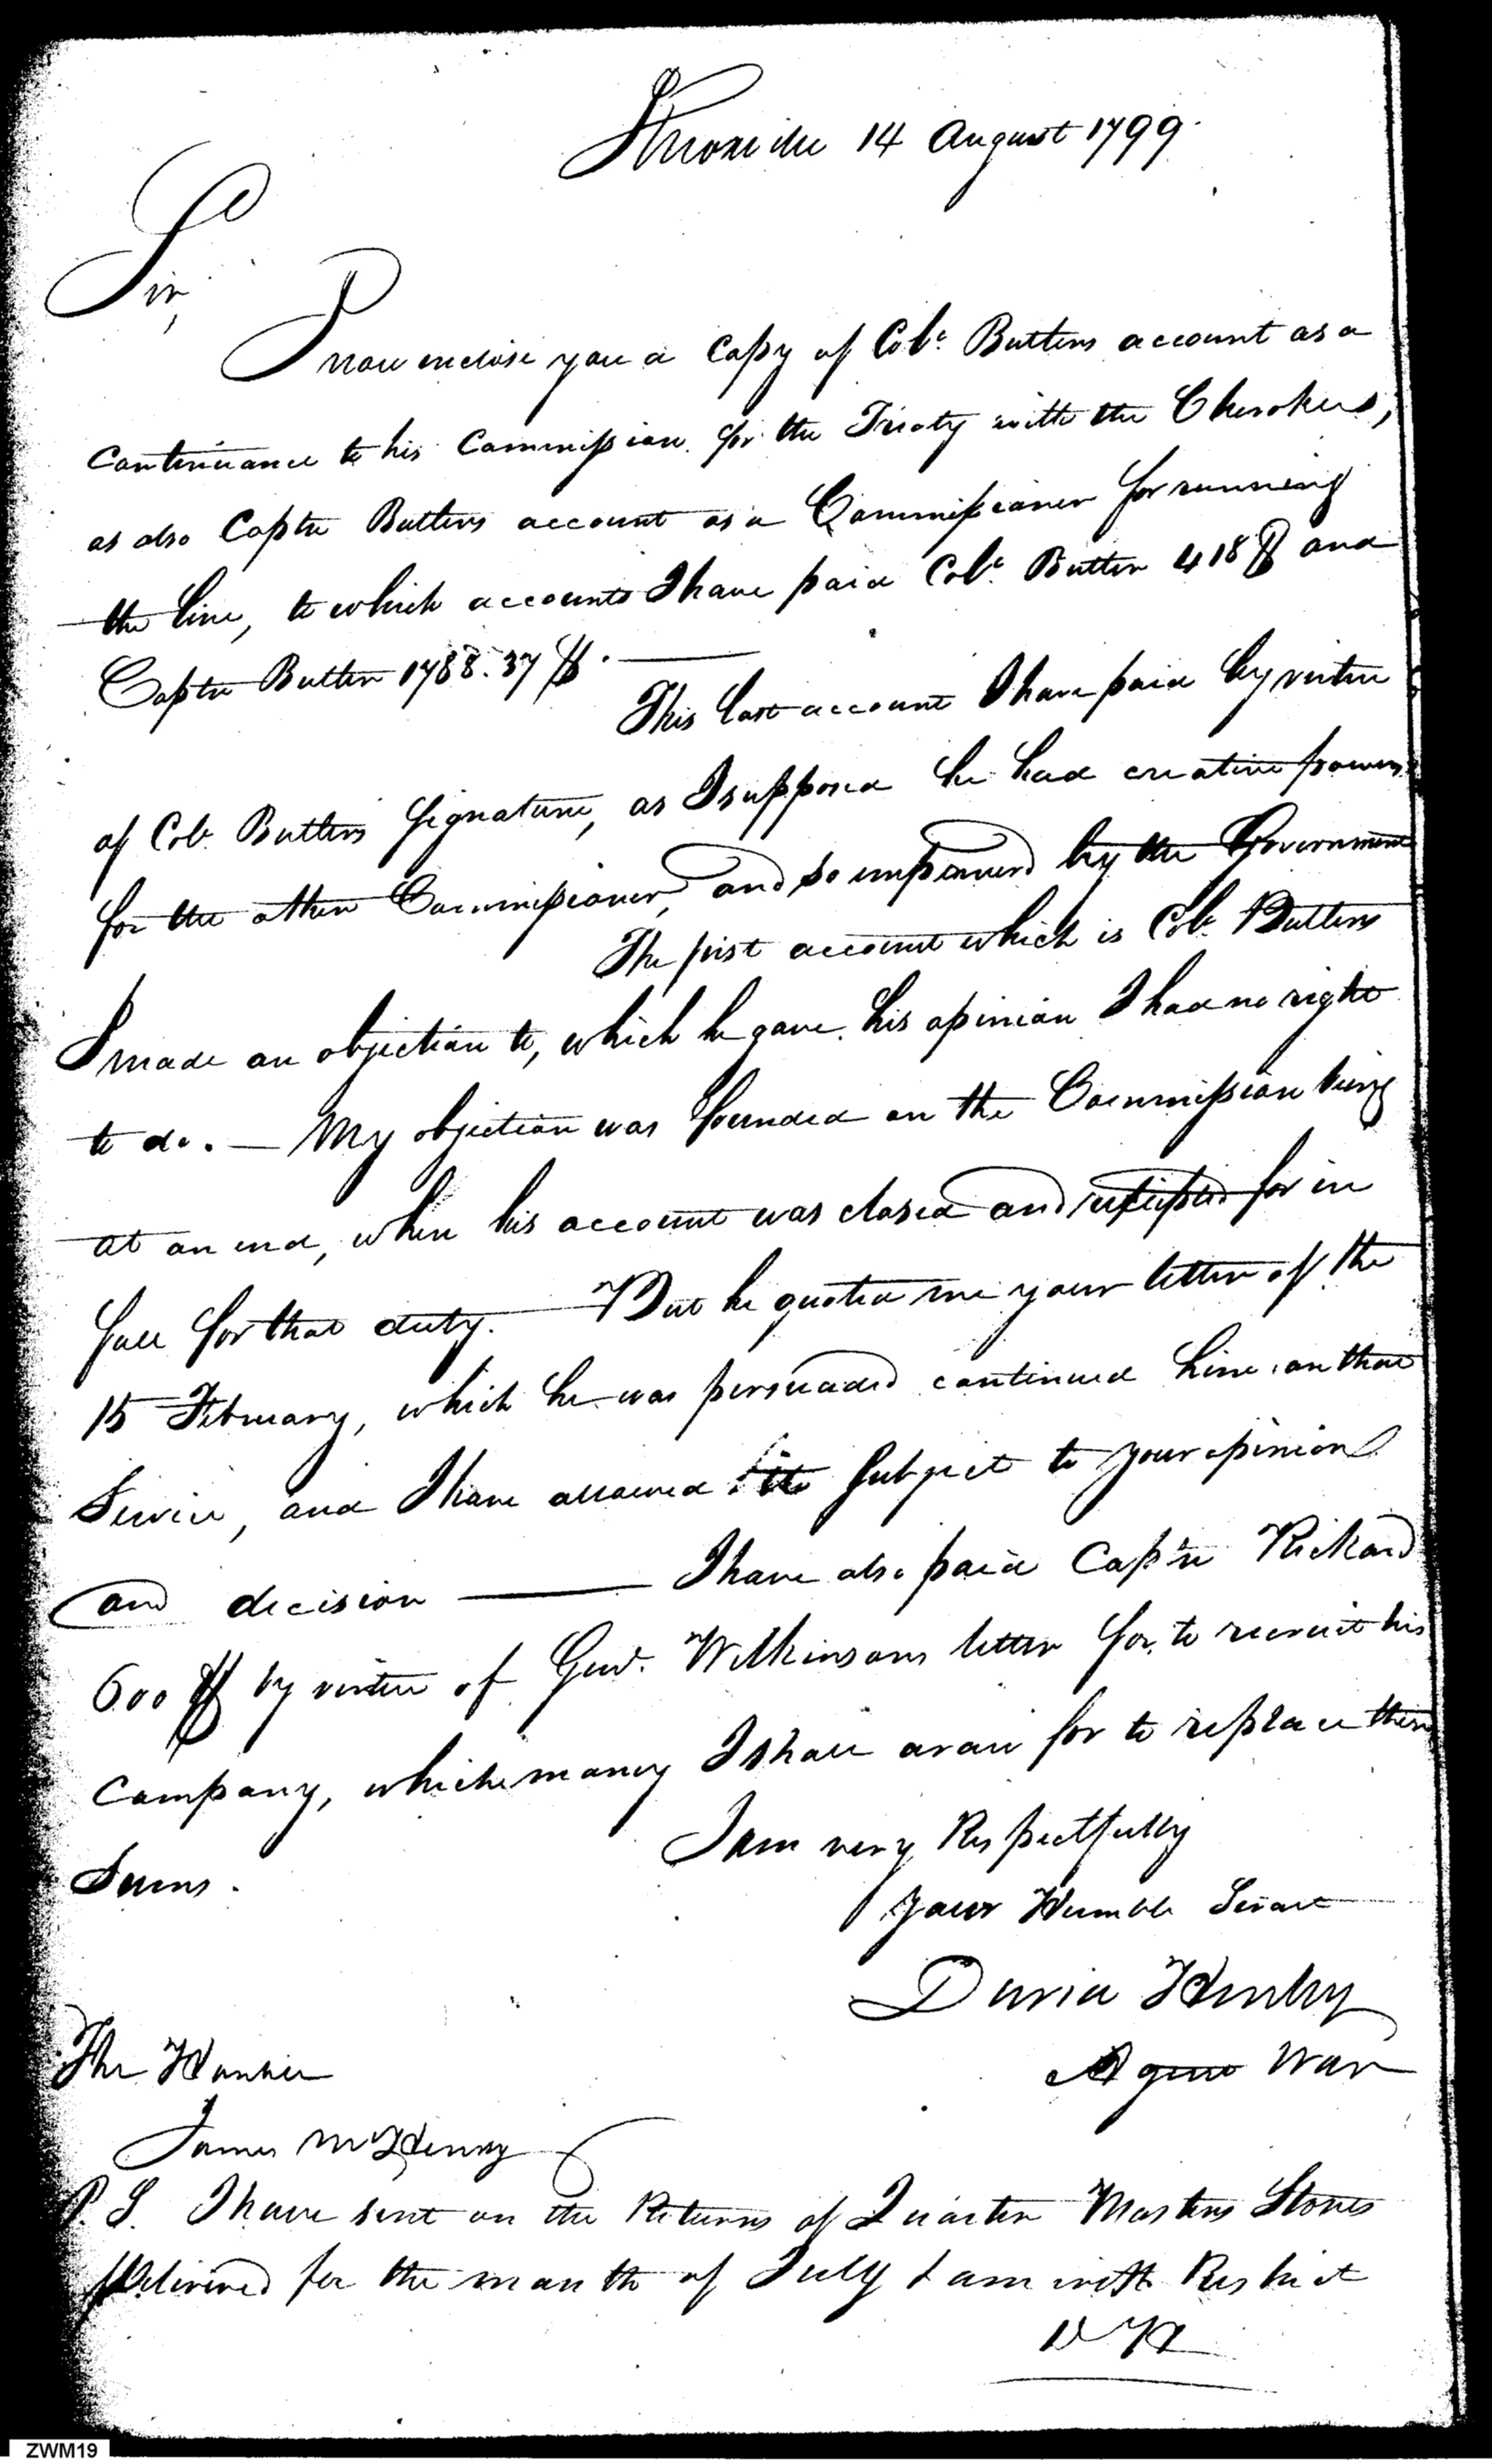 Knoxville 14 August 1799.
Sir,
I now enclose you a Copy of Colo. Butlers account as a
continuance to his Commission for the Treaty with the Cherokees,
as also Captn Butlers account as a Commissioner for running
the line, to which accounts I have paid Colo. Butler 418 $ and
Captn Butler 1788.37 $. —
This last account I have paid by virtue
of Colo. Butlers signature, as I supposed he had creative powers
for the other Commissioner, and so empowered by the Government
The first account which is Colo. Butlers
I made an objection to, which he gave his opinion I had no right
to do. — My objection was founded on the Commission being
at an end, when his account was closed and receipted for in
full for that duty. — But he quoted me your letter of the
15 February, which he was persuaded continued him on that
Service, and I have allowed it subject to your opinion
and decision — I have also paid Captn Rickard
600 $ by virtue of Genl. Wilkinsons letter for to recruit his
Company, which money I shall draw for to replace these
Sums.
I am very Respectfully
your Humble Servant
David Henley
Agent War
The Honble
James McHenry
P.S. I have sent on the Returns of Quarter Masters Stores
Delivered for the month of July I am with Respect
D H
ZWM19